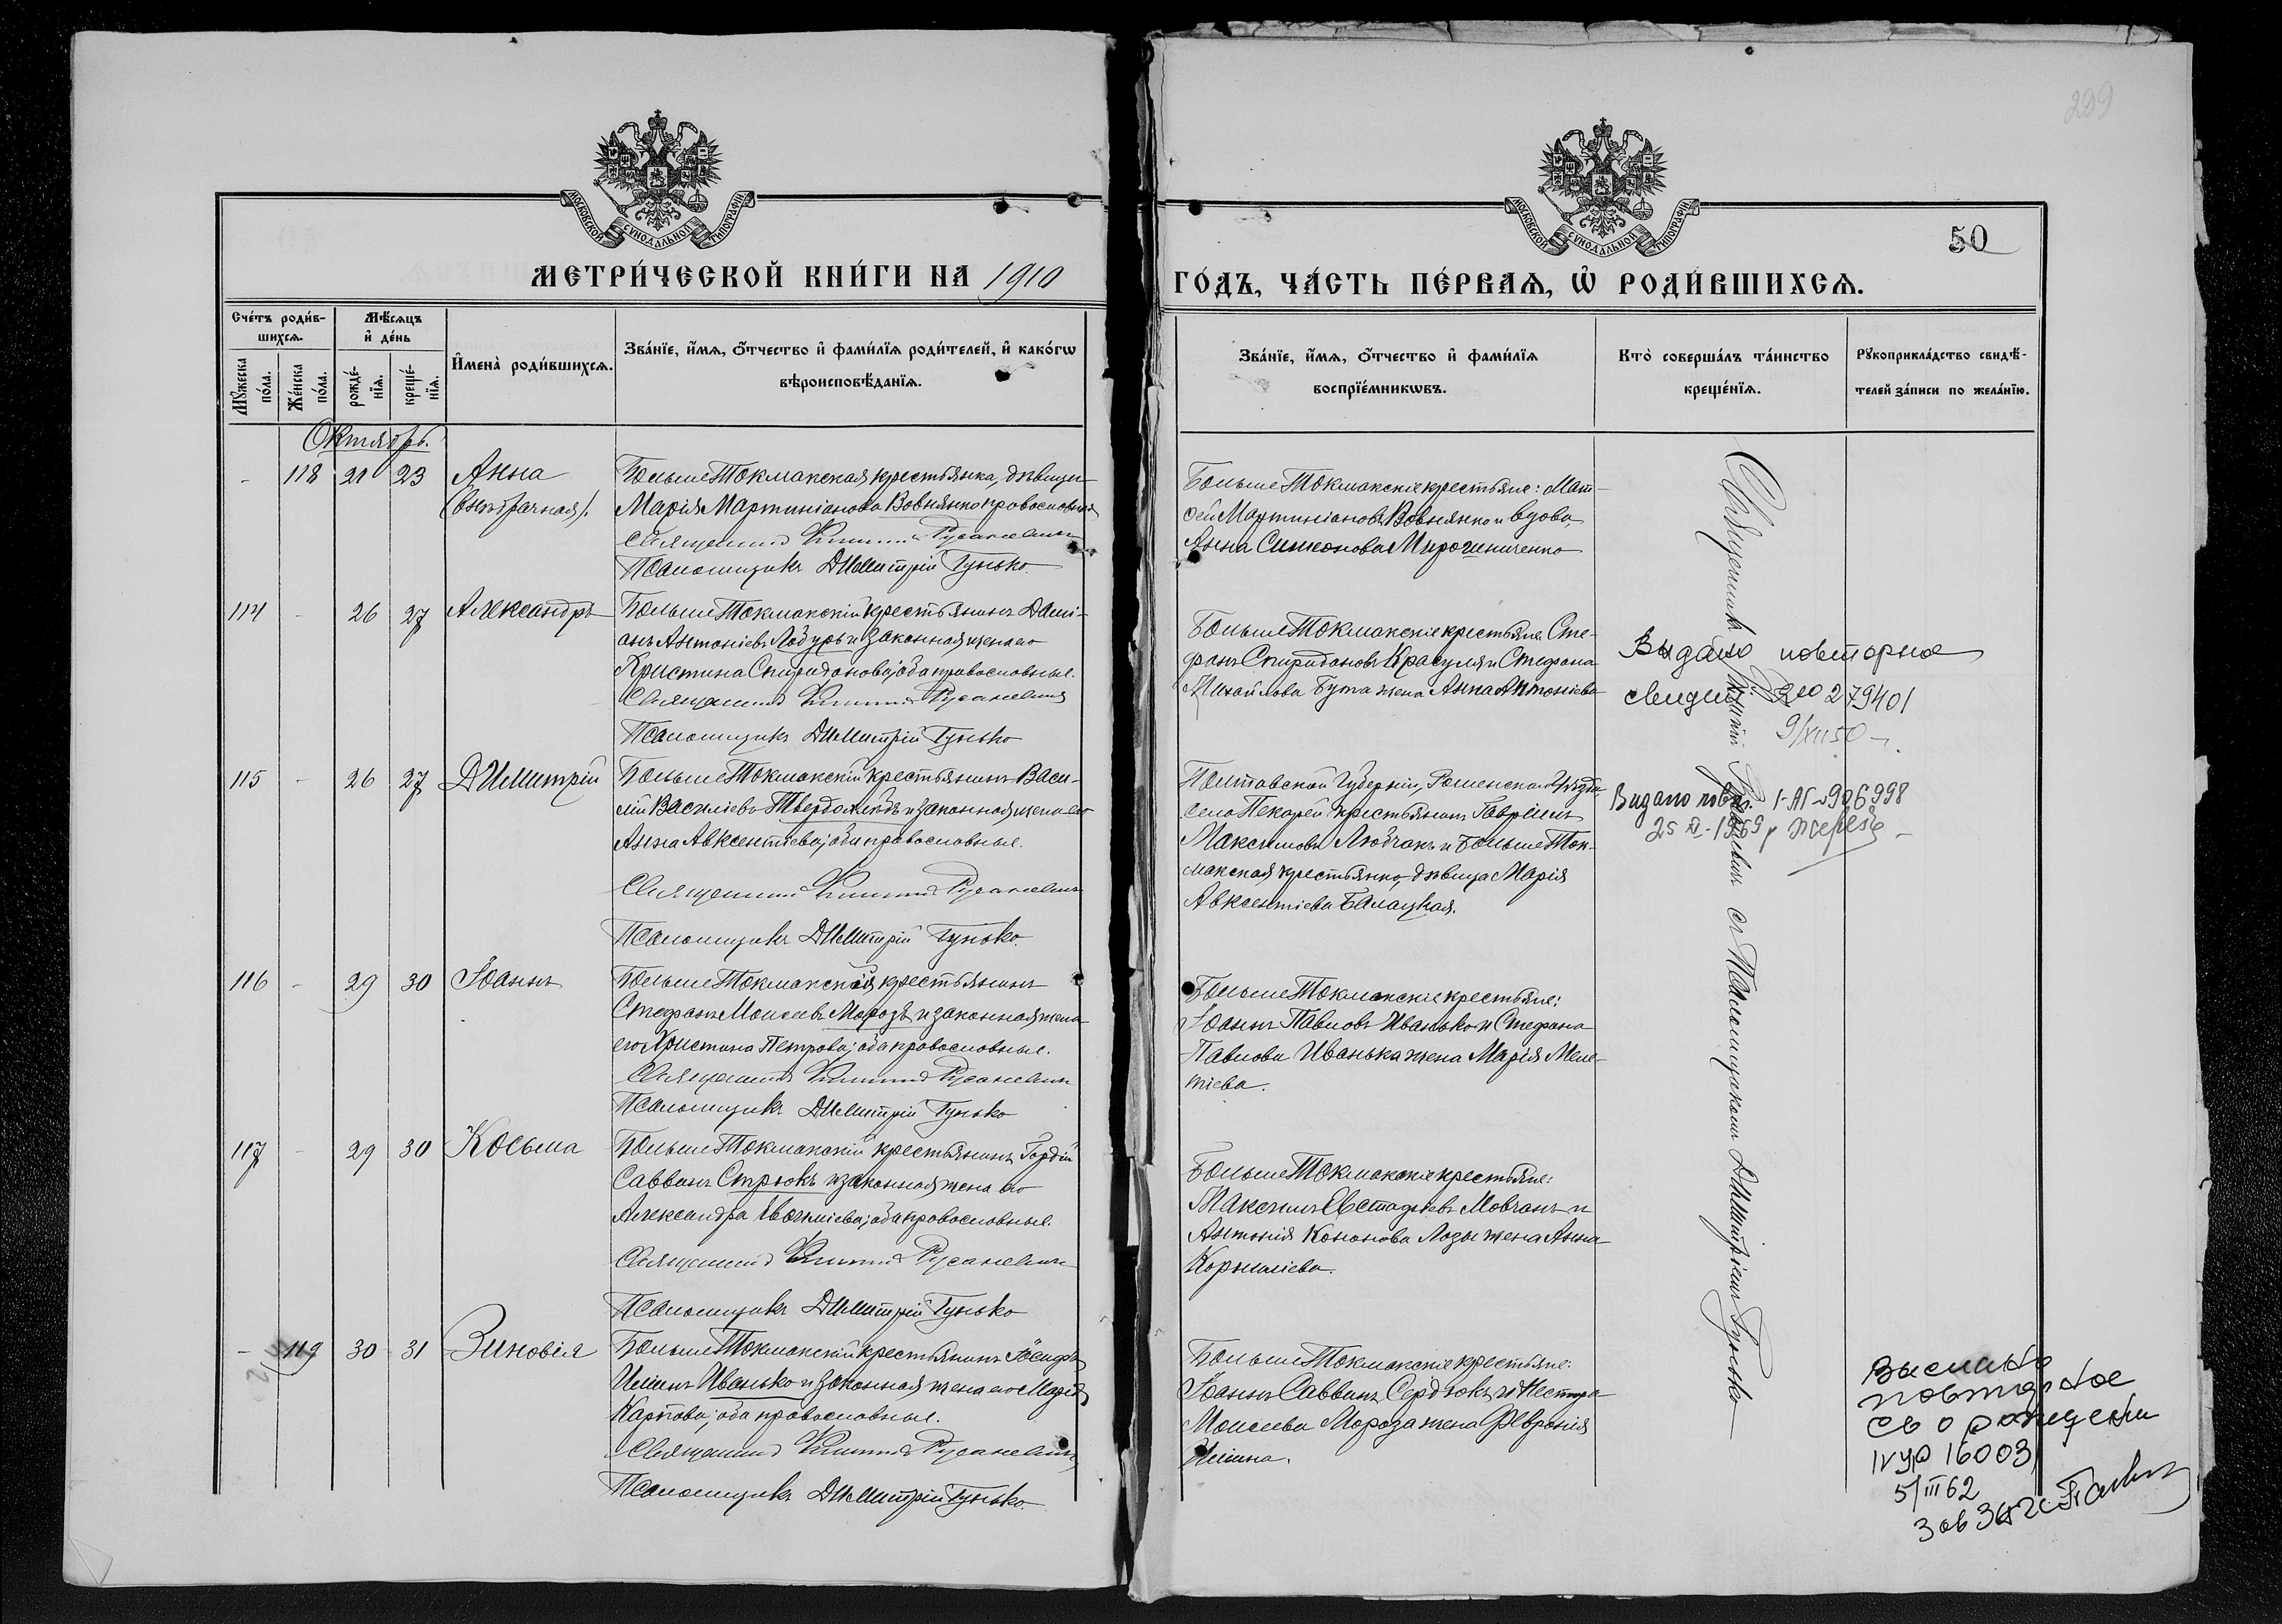 299
50
МОСКОВСКОЙ СУНОДАЛЬНОЙ ТИПОГРАФІИ
МОСКОВСКОЙ СУНОДАЛЬНОЙ ТИПОГРАФІИ
МЕТРИ́ЧЕСКОЙ КНИ́ГИ НА 1910
ГО́ДЪ, ЧА́СТЬ ПЕ́РВАЯ, Ѽ РОДИ́ВШИХСЯ.
Сче́тъ роди́в-
шихся.
Мѣ́сяцъ
и҆ де́нь
Мꙋ́жеска
по́ла.
Же́нска
по́ла.
рожде́-
нїя.
креще́-
нїя.
И҆мена̀ роди́вшихся.
Зва́нїе, и҆́мя, ѻ҆́тчество и҆ фами́лїя роди́телей, и҆ како́гѡ
вѣроисповѣ́данїя.
Зва́нїе, и҆́мя, ѻ҆́тчество и҆ фами́лїя
воспрїе́мникѡвъ.
Кто̀ соверша́лъ та́инство
креще́нїя.
Рꙋкоприкла́дство свидѣ́-
телей за́писи по жела́нїю.
Октябрь.
- 118 21 23 Анна
(внѣбрачная).
БольшеТокмакская крестьянка, дѣвица
Марія Мартиніанова Вовнянко православная
Священникъ Русаневичъ
Псаломщикъ Димитрій Гунько.
БольшеТокмакскіе крестьяне: Мат-
ѳей Мартиніановъ Вовнянко и вдова
Анна Симеонова Мирошниченко
114 - 26 27 Александръ
БольшеТокмакскій крестьянинъ Дамі-
анъ Антоніевъ Лобурь и законная жена его
Христина Спиридонова; оба православные.
Священникъ Русаневичъ
Псаломщикъ Димитрій Гунько
БольшеТокмакскіе крестьяне Сте-
фанъ Спиридоновъ Красуля и Стефана
Михайлова Бута жена Анна Антоніева
Выдано повторное
279401
9/XII 50
115 - 26 27 Димитрій
БольшеТокмакскій крестьянинъ Васи-
лій Василіевъ Твердохлѣбъ и законная жена его
Анна Авксентіева; оба православные.
Священникъ Русаневичъ
Псаломщикъ Димитрій Гунько.
Полтавской Губерніи, Роменскаго Уѣзда
села Пекарей крестьянинъ Гавріилъ
Максимовъ Любчакъ и БольшеТок-
макская крестьянка, дѣвица Марія
Авксентіева Балацкая.
Видано повт. 906998
116 - 29 30 Іоаннъ
БольшеТокмакскій крестьянинъ
Стефанъ Моисеевъ Морозъ и законная жена
его Христина Петрова; оба православные.
Священникъ Русаневичъ
Псаломщикъ Димитрій Гунько
БольшеТокмакскіе крестьяне:
Іоаннъ Павловъ Иванько и Стефана
Павлова Иванька жена Марія Меле-
тіева.
117 - 29 30 Косьма
БольшеТокмакскій крестьянинъ Гордій
Саввинъ Стрюкъ и законная жена его
Александра православные.
Священникъ Русаневичъ
Псаломщикъ Димитрій Гунько
БольшеТокмакскіе крестьяне:
Максимъ Евстафіевъ Мовчанъ и
Антонія Кононова Лозы жена Анна
Корниліева.
- 119 30 31 Зиновія
БольшеТокмакскій крестьянинъ Іосифъ
Ильинъ Иванько и законная жена его Марія
Карпова; оба православные.
Священникъ Русаневичъ
Псаломщикъ Димитрій Гунько.
БольшеТокмакскіе крестьяне:
Іоаннъ Саввинъ Сердюкъ и Нестора
Моисеева Мороза жена Февронія
Ильина.
Священникъ Русаневичъ съ Псаломщикомъ Димитріемъ Гунько
Выслано
повторное
св о рождении
16003
5/III 62